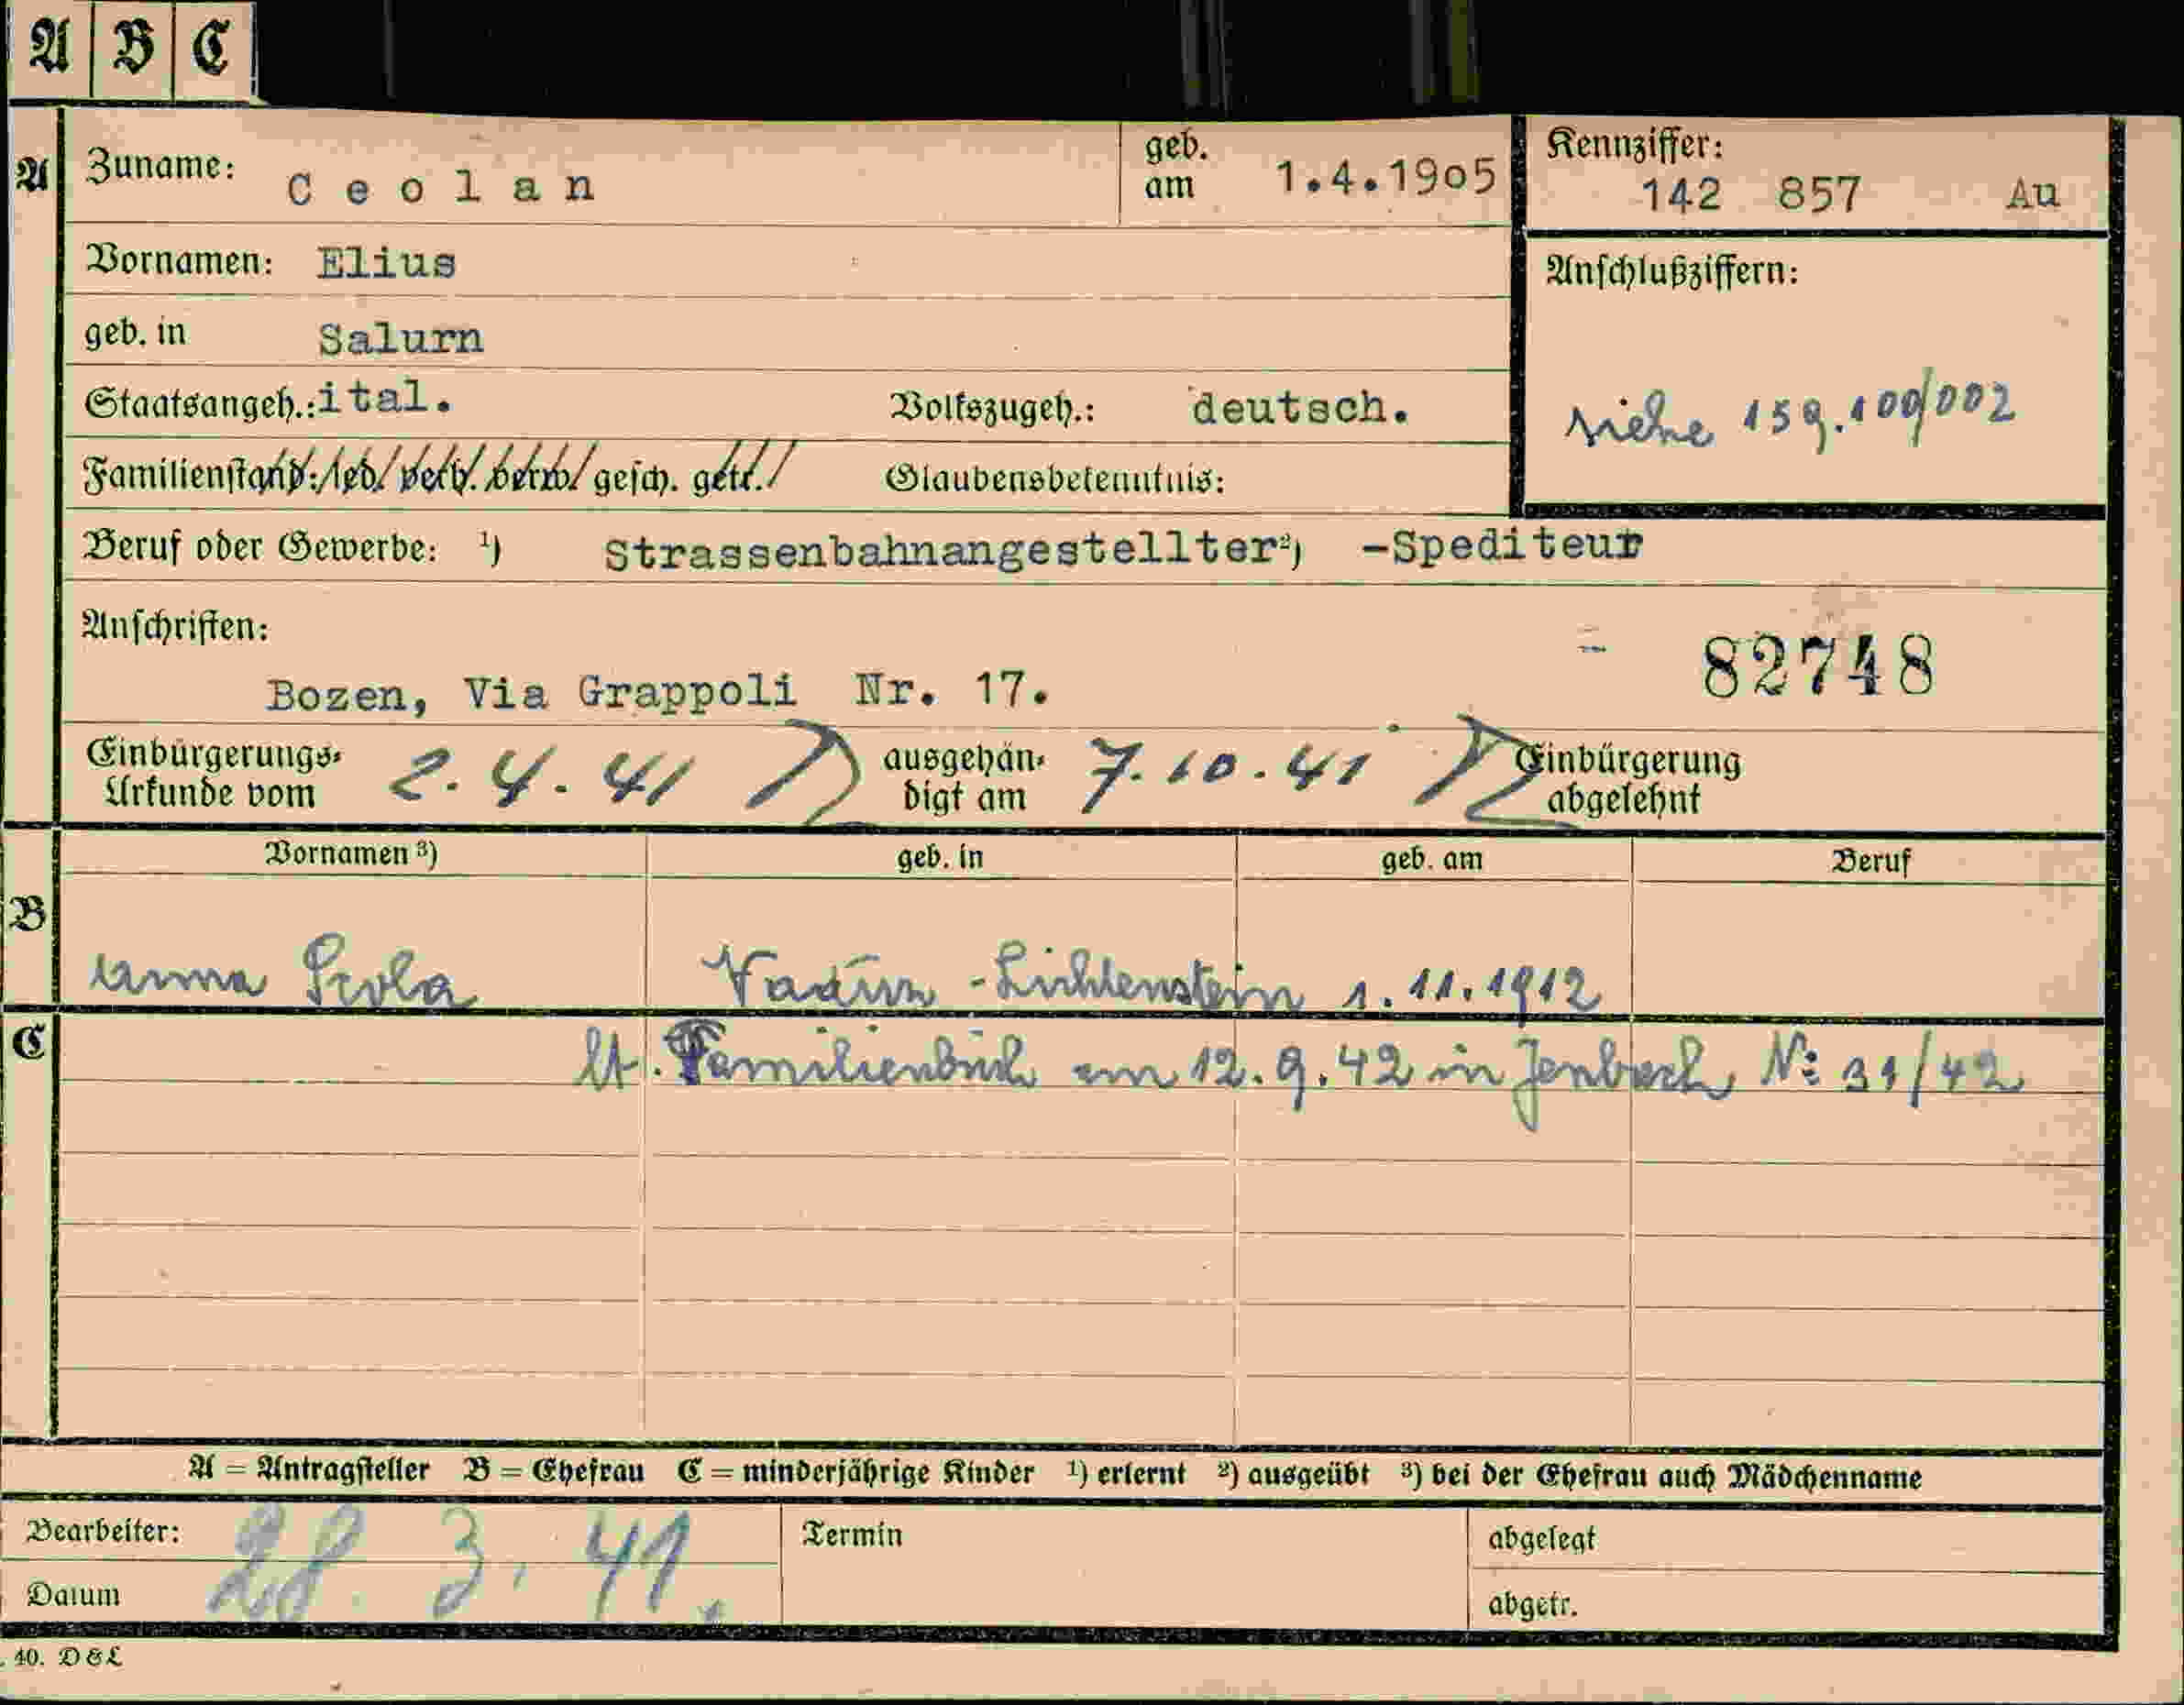 A B C
A Zuname: Ceolan geb. am 1.4.1905 Kennziffer: 142 857 Au
Vornamen: Elius Anschlußziffern:
geb. in Salurn
Staatsangeh.: ital. Volkszugeh.: deutsch. siehe 159.100/002
Familienstand: led. verh. verw. gesch. getr. Glaubensbekenntnis:
Beruf oder Gewerbe: ¹) Strassenbahnangestellter ²) -Spediteur
Anschriften: 82748
Bozen, Via Grappoli Nr. 17.
Einbürgerungs- Urkunde vom 2.4.41 ausgehän- digt am 7.10.41 Einbürgerung abgelehnt
Vornamen ³) geb. in geb. am Beruf
B
Anna Vaduz - Lichtenstein 1.11.1912
C lt. Familienbuch am 12.9.42 in Jenbach No 31/42
A = Antragsteller B = Ehefrau C = minderjährige Kinder ¹) erlernt ²) ausgeübt ³) bei der Ehefrau auch Mädchenname
Bearbeiter: 28.3.41. Termin abgelegt
Datum abgetr.
. 40. D & L